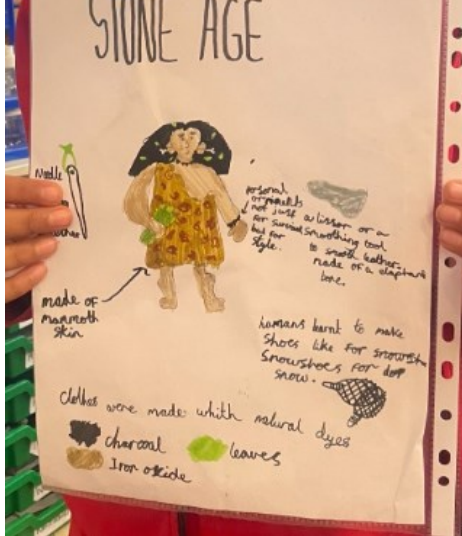 STONE AGE
Needle
personal
ornaments
not just
for survival
but for
style.
a lissor or a
smoothing tool
to smooth leather.
made of a elaphants
bone.
made of
mammoth
skin
humans learnt to make
shoes like for
snowshoes for
snow.
Clothes were made whith natural dyes
charcoal
leaves
Iron oxide